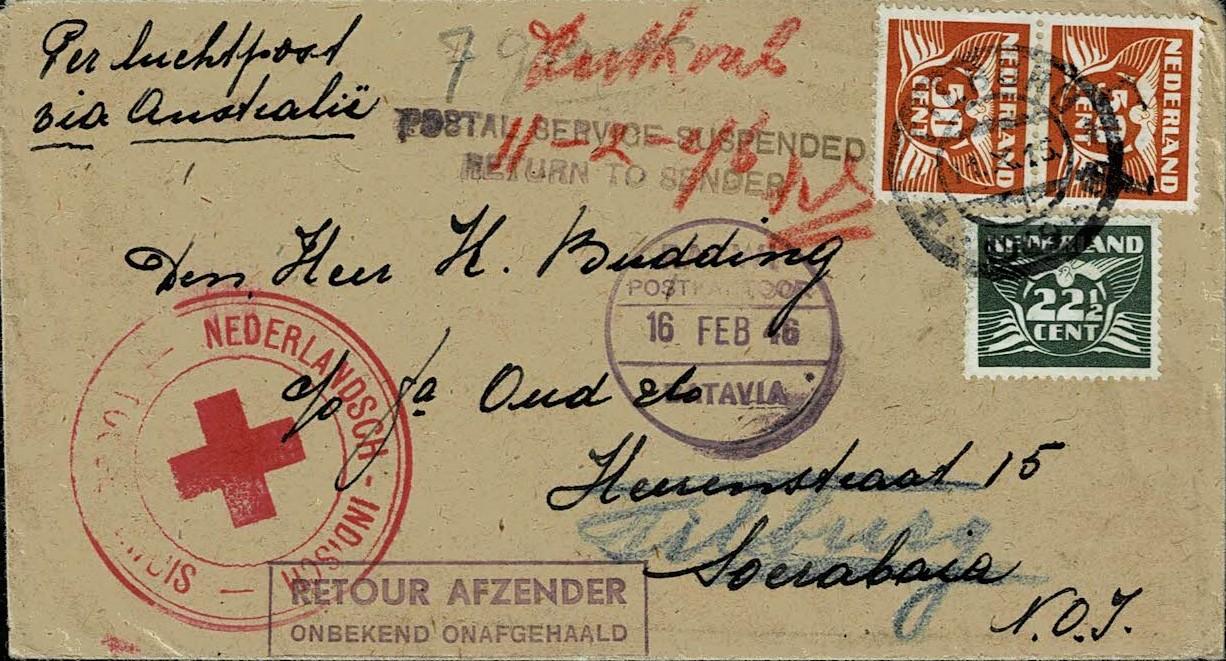 Per luchtpost
via Australië
7
POSTAL SERVICE SUSPENDED
RETURN TO SENDER
11-2-46
NEDERLAND
50
CENT
NEDERLAND
50
CENT
NEDERLAND
22½
CENT
Den Heer K. Budding
POSTKANTOOR
16 FEB 46
BATAVIA
c/o fa Oud & Co
Heerenstraat 15
Tilburg
Soerabaja
N.O.I.
NEDERLANDSCH-INDISCH
RETOUR AFZENDER
ONBEKEND ONAFGEHAALD